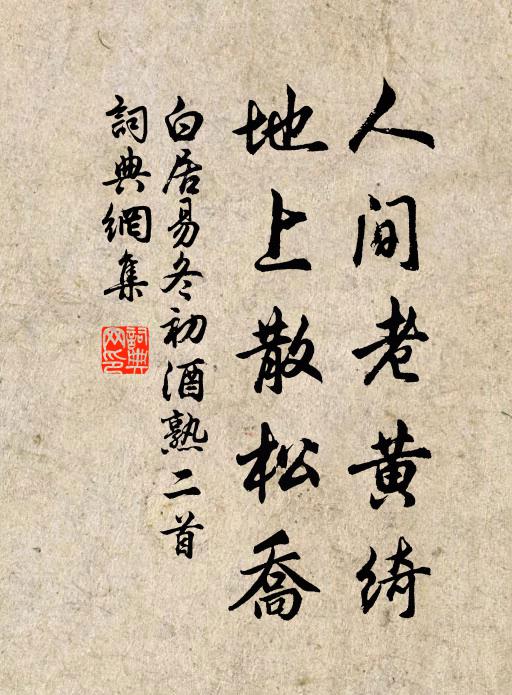 人间老黄绮
地上散松喬
白居易冬初酒熟二首
詞典網集
詞典网印